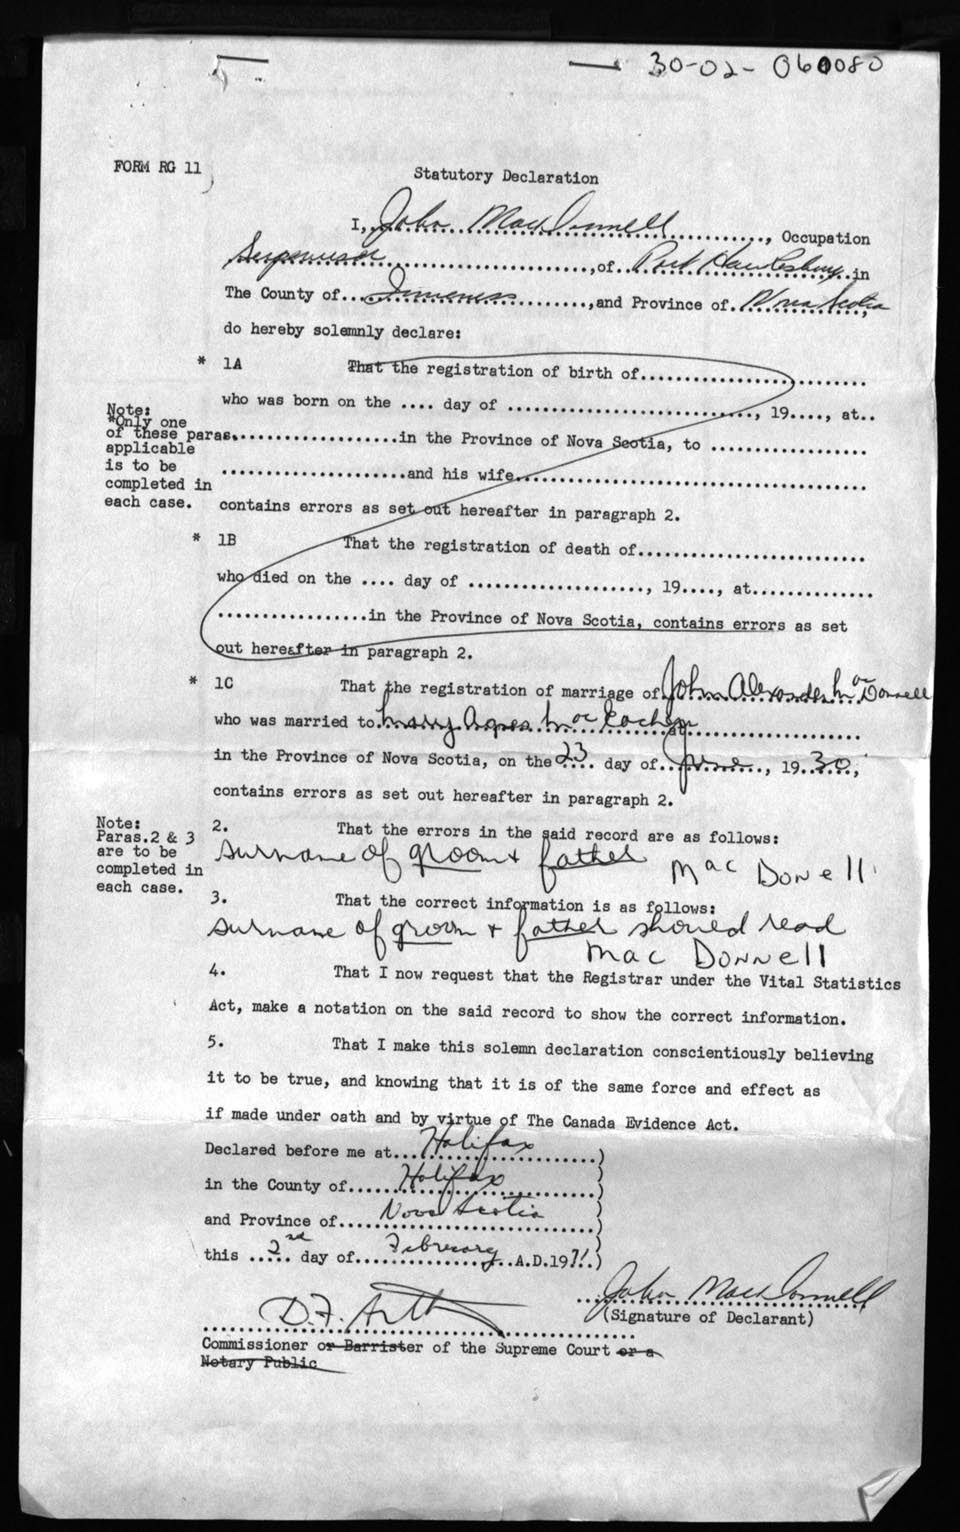 30-02-060080
FORM RG 11
Statutory Declaration
I, John MacDonnell, Occupation
Supervisor, of Port Hawkesbury in
The County of Inverness, and Province of Nova Scotia,
do hereby solemnly declare:
* 1A That the registration of birth of
who was born on the .... day of ...................., 19...., at..
Note:
*Only one
of these paras.
applicable
is to be
completed in
each case.
..................in the Province of Nova Scotia, to ..................
...................and his wife.......................................
contains errors as set out hereafter in paragraph 2.
* 1B That the registration of death of..........................
who died on the .... day of ...................., 19...., at..............
.................in the Province of Nova Scotia, contains errors as set
out hereafter in paragraph 2.
* 1C That the registration of marriage of John Alexander MacDonnell
who was married to Mary Agnes MacEachern at....................
in the Province of Nova Scotia, on the 23 day of June, 19 30,
contains errors as set out hereafter in paragraph 2.
Note:
Paras.2 & 3
are to be
completed in
each case.
2. That the errors in the said record are as follows:
surname of groom + father Mac Donell
3. That the correct information is as follows:
surname of groom + father should read
Mac Donnell
4. That I now request that the Registrar under the Vital Statistics
Act, make a notation on the said record to show the correct information.
5. That I make this solemn declaration conscientiously believing
it to be true, and knowing that it is of the same force and effect as
if made under oath and by virtue of The Canada Evidence Act.
Declared before me at Halifax )
in the County of Halifax )
and Province of Nova Scotia )
this 2nd day of February A.D.1971.)
John MacDonnell
(Signature of Declarant)
D.F.
Commissioner or Barrister of the Supreme Court or a
Notary Public